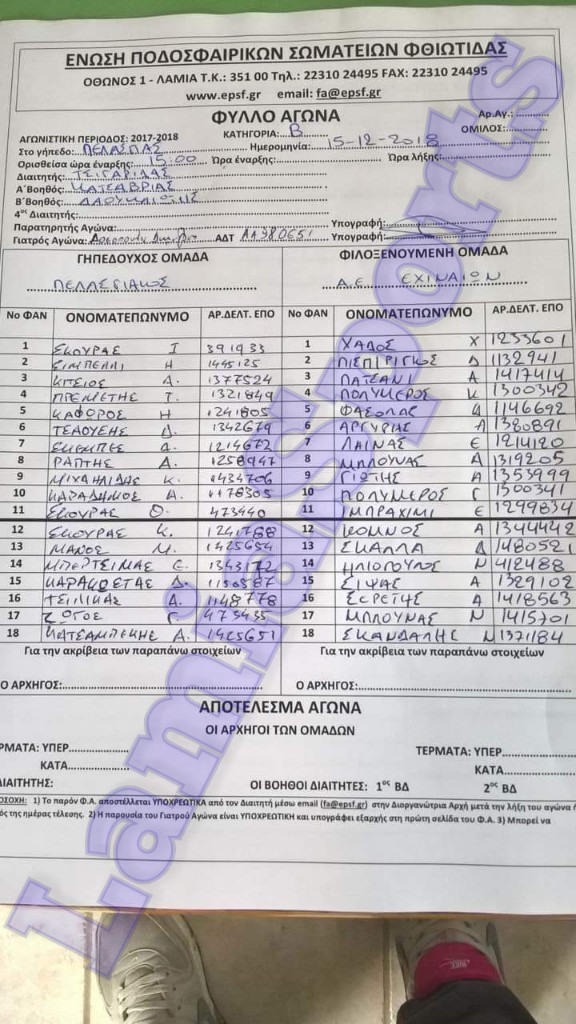 ΕΝΩΣΗ ΠΟΔΟΣΦΑΙΡΙΚΩΝ ΣΩΜΑΤΕΙΩΝ ΦΘΙΩΤΙΔΑΣ
ΟΘΩΝΟΣ 1 - ΛΑΜΙΑ Τ.Κ.: 351 00 Τηλ.: 22310 24495 FAX: 22310 24495
www.epsf.gr email: fa@epsf.gr
ΦΥΛΛΟ ΑΓΩΝΑ
Αρ.Αγ.:
ΑΓΩΝΙΣΤΙΚΗ ΠΕΡΙΟΔΟΣ: 2017-2018 ΚΑΤΗΓΟΡΙΑ: Β ΟΜΙΛΟΣ:
Στο γήπεδο: ΠΕΛΑΣΓΙΑΣ Ημερομηνία: 15-12-2018
Ορισθείσα ώρα έναρξης: 15:00 Ώρα έναρξης: Ώρα λήξης:
Διαιτητής: ΤΣΙΓΑΡΙΔΑΣ
Α΄Βοηθός: ΚΑΤΣΑΒΡΙΑΣ
Β΄Βοηθός:
4ος Διαιτητής:
Παρατηρητής Αγώνα: Υπογραφή:
Γιατρός Αγώνα: ΑΔΤ Υπογραφή:
ΓΗΠΕΔΟΥΧΟΣ ΟΜΑΔΑ ΦΙΛΟΞΕΝΟΥΜΕΝΗ ΟΜΑΔΑ
ΠΕΛΑΣΓΙΑΚΟΣ Α.Ε. ΕΧΙΝΑΙΩΝ
Νο ΦΑΝ ΟΝΟΜΑΤΕΠΩΝΥΜΟ ΑΡ.ΔΕΛΤ. ΕΠΟ Νο ΦΑΝ ΟΝΟΜΑΤΕΠΩΝΥΜΟ ΑΡ.ΔΕΛΤ. ΕΠΟ
1 ΣΚΟΥΡΑΣ Ι 391933 1 ΧΑΔΟΣ Χ 1233601
2 Η 1445125 2 ΠΙΣΠΙΡΙΓΚΟΣ Δ 1132941
3 ΚΙΤΣΙΟΣ Δ. 1377524 3 ΠΑΤΣΑΝΙ Α 1417414
4 ΠΡΕΜΕΤΗΣ Τ. 1321849 4 ΠΟΛΥΜΕΡΟΣ Κ 1300342
5 ΚΑΦΟΡΟΣ Η 1241805 5 ΦΑΣΟΛΑΣ Δ 1146692
6 ΤΣΑΟΥΣΗΣ Δ. 1342679 6 ΑΡΓΥΡΗΣ Λ 1380891
7 Δ. 1214672 7 ΛΑΙΝΑΣ Ε 1214120
8 ΡΑΠΤΗΣ Δ. 1258947 8 ΜΠΛΟΥΝΑΣ Ε 1319205
9 ΜΙΧΑΗΛΙΔΗΣ Κ. 1434706 9 ΓΙΩΤΗΣ Γ 1353999
10 ΚΑΡΑΔΗΜΟΣ Α. 1178305 10 ΠΟΛΥΜΕΡΟΣ Γ 1300341
11 ΣΚΟΥΡΑΣ Θ. 473440 11 ΙΜΠΡΑΧΙΜΙ Ε 1299834
12 ΣΚΟΥΡΑΣ Κ. 1241788 12 ΚΟΜΝΟΣ Α 1344442
13 ΜΑΝΟΣ Μ. 1425654 13 ΣΚΑΛΛΑ Δ 1480521
14 ΜΠΕΡΤΣΙΜΑΣ Ε. 1343172 14 ΗΛΙΟΠΟΥΛΟΣ Ν 412488
15 ΚΑΡΑΚΩΣΤΑΣ Δ. 1130587 15 ΣΙΨΑΣ Α 1329102
16 ΤΣΙΛΙΚΑΣ Δ. 1148778 16 ΣΕΡΕΤΗΣ Α 1418563
17 ΖΩΓΟΣ Γ. 475435 17 ΜΠΛΟΥΝΑΣ Ν 1415701
18 ΚΑΤΣΑΜΠΕΚΗΣ Δ. 1425651 18 ΣΚΑΝΔΑΛΗΣ Ν 1371184
Για την ακρίβεια των παραπάνω στοιχείων Για την ακρίβεια των παραπάνω στοιχείων
Ο ΑΡΧΗΓΟΣ: Ο ΑΡΧΗΓΟΣ:
ΑΠΟΤΕΛΕΣΜΑ ΑΓΩΝΑ
ΟΙ ΑΡΧΗΓΟΙ ΤΩΝ ΟΜΑΔΩΝ
ΤΕΡΜΑΤΑ: ΥΠΕΡ ΤΕΡΜΑΤΑ: ΥΠΕΡ
ΚΑΤΑ ΚΑΤΑ
ΔΙΑΙΤΗΤΗΣ: ΟΙ ΒΟΗΘΟΙ ΔΙΑΙΤΗΤΕΣ: 1ος ΒΔ 2ος ΒΔ
ΠΡΟΣΟΧΗ: 1) Το παρόν Φ.Α. αποστέλλεται ΥΠΟΧΡΕΩΤΙΚΑ από τον Διαιτητή μέσω email (fa@epsf.gr) στην Διοργανώτρια Αρχή μετά την λήξη του αγώνα
της ημέρας τέλεσης. 2) Η παρουσία του Γιατρού Αγώνα είναι ΥΠΟΧΡΕΩΤΙΚΗ και υπογράφει εξαρχής στη πρώτη σελίδα του Φ.Α. 3) Μπορεί να
LamiaSports